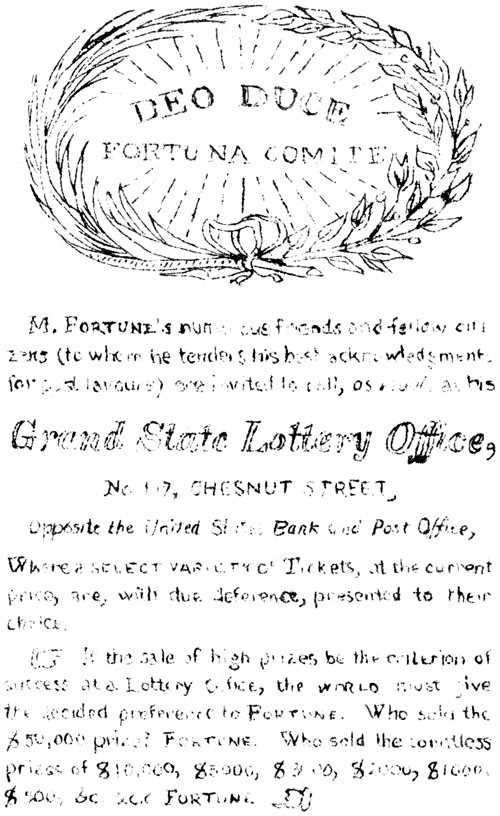 DEO DUCE
FORTUNA COMITE
M. FORTUNE'S numerous friends and fellow citi
zens (to whom he tenders his best acknowledgments
for past favours) are invited to call, as usual, at his
Grand State Lottery Office,
No. CHESNUT STREET,
Opposite the United States Bank and Post Office,
Where a SELECT VARIETY of Tickets, at the current
price, are, with due deference, presented to their
choice.
If the sale of high prizes be the criterion of
success at a Lottery Office, the WORLD must give
the decided preference to FORTUNE. Who sold the
$50,000 prize? FORTUNE. Who sold the countless
prizes of $10,000, $5000, $2000, $1000,
$500, &c. &c.? FORTUNE